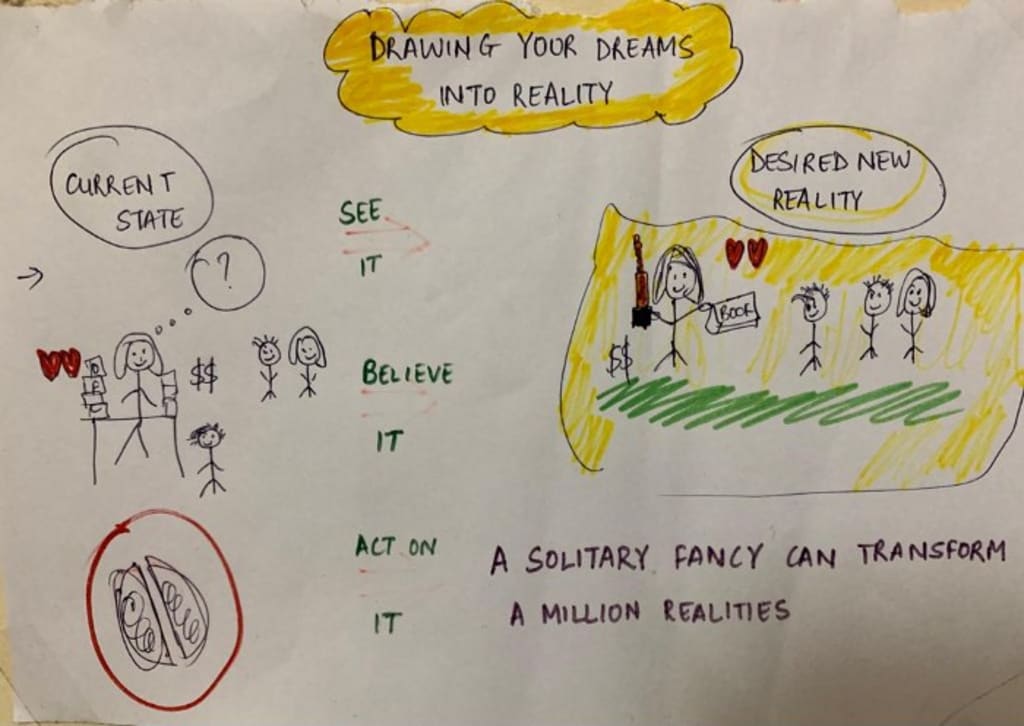 DRAWING YOUR DREAMS
INTO REALITY
CURRENT
STATE
?
$$
SEE
IT
BELIEVE
IT
ACT ON
IT
DESIRED NEW
REALITY
BOOK
$$
A SOLITARY FANCY CAN TRANSFORM
A MILLION REALITIES